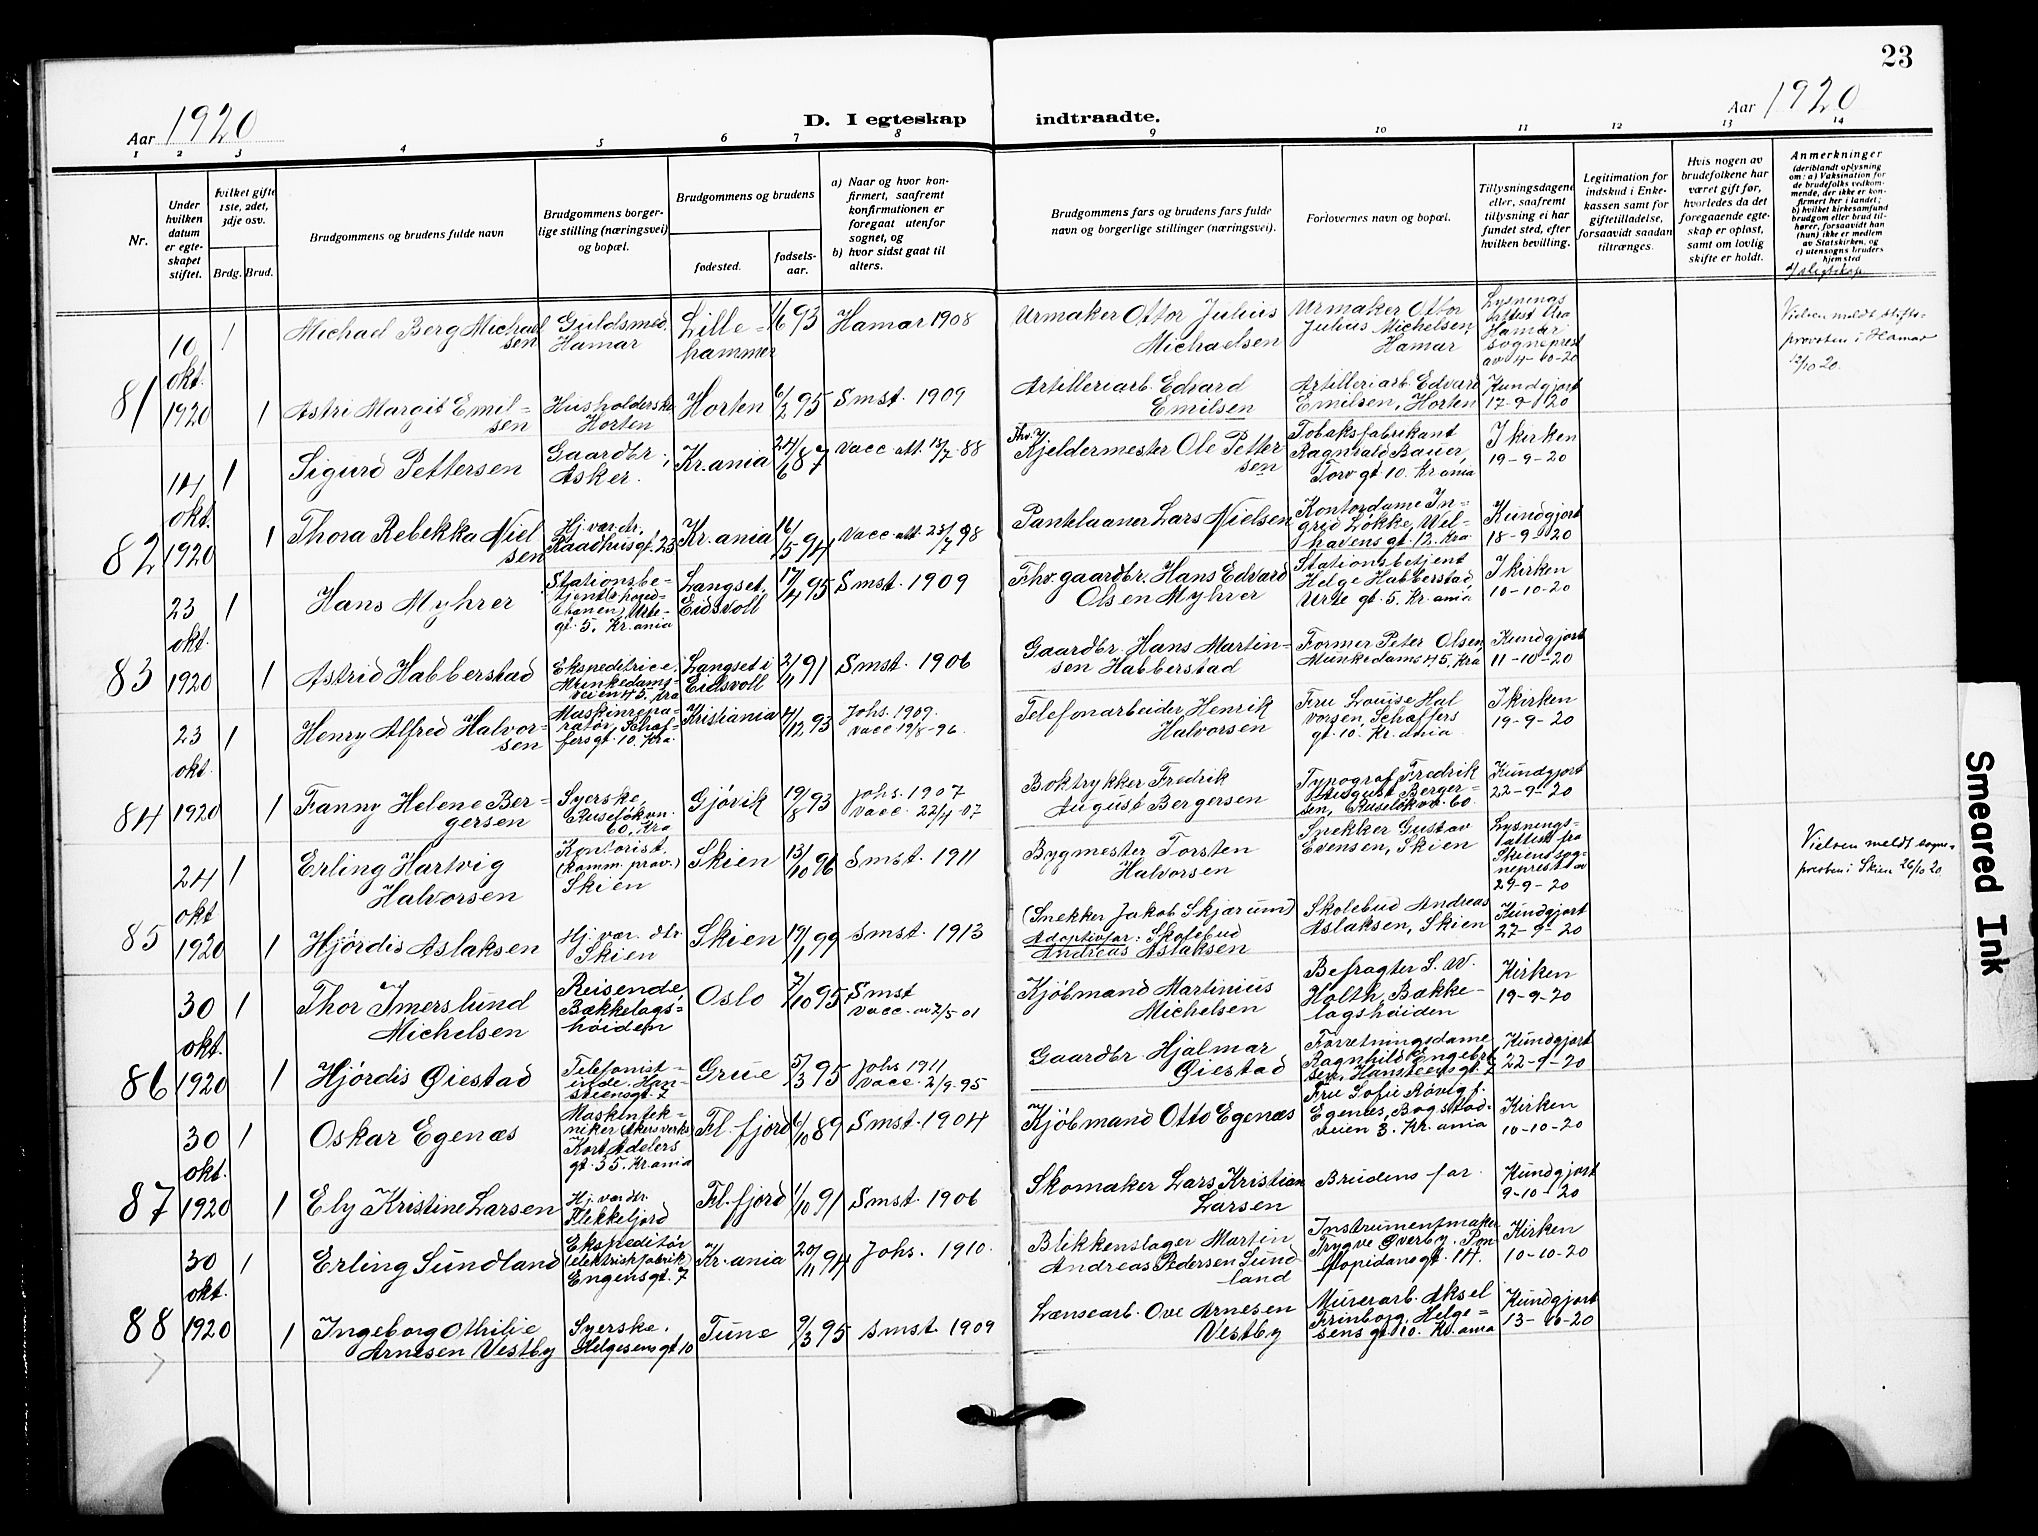 23
Aar 1920
D. I egteskap indtraadte.
Aar 1920
1 2 3 4 5 6 7 8 9 10 11 12 13 14
Nr.
Under hvilken datum er egteskapet stiftet.
hvilket gifte 1ste, 2det, 3dje osv.
Brdg. Brud.
Brudgommens og brudens fulde navn
Brudgommens borgerlige stilling (næringsvei) og bopæl.
Brudgommens og brudens
fødested.
fødselsaar.
a) Naar og hvor konfirmert, saafremt konfirmationen er foregaat utenfor sognet, og
b) hvor sidst gaat til alters.
Brudgommens fars og brudens fars fulde navn og borgerlige stillinger (næringsvei).
Forlovernes navn og bopæl.
Tillysningsdagene eller, saafremt tillysning ei har fundet sted, efter hvilken bevilling.
Legitimation for indskud i Enkekassen samt for giftetilladelse, forsaavidt saadan tiltrænges.
Hvis nogen av brudefolkene har været gift før, hvorledes da det foregaaende egteskap er opløst, samt om lovlig skifte er holdt.
Anmerkninger
(deriblandt oplysning om: a) Vaksination for de brudefolks vedkommende, der ikke er konfirmert her i landet; b) hvilket kirkesamfund brudgom eller brud tilhører, forsaavidt han (hun) ikke er medlem av Statskirken, og c) utensogns bruders hjemsted
81
10 okt. 1920
1 Michael Berg Michaelsen Guldsmed, Hamar Lillehammer 1/6 93 Hamar 1908 Urmaker Ottor Julius Michaelsen Urmaker Ottor Julius Michelsen, Hamar Lysnings attest fra Hamar sogneprest av 4-10-20 Vielsen meldt stiftsprovsten i Hamar 12/10 20.
1 Astri Margit Emilsen Husholderske Horten Horten 6/2 95 Smst. 1909 Artilleriarb. Edvard Emilsen Artilleriarb. Edvard Emilsen, Horten Kundgjort 17-9-20
82
14 okt. 1920
1 Sigurd Pettersen Gaardbr., Asker. Kr.ania 24/6 87 Vacc. att. 18/7-88 Fhv. Kjeldermester Ole Pettersen Tobaksfabrikant Ragnvald Bauer, Torvgt. 10. Kr.ania I kirken 19-9-20
1 Thora Rebekka Nielsen Hj. vær. dtr. Raadhusgt. 23 Kr.ania 16/5 94 Vacc. att. 23/7 98 Pantelaaner Lars Nielsen Kontordame Ingrid Løkke, Welhavens gt. 12. Kra Kundgjort 18-9-20
83
23 okt. 1920
1 Hans Myhrer Stationsbetjent Urtegt. 5. Kr.ania Langset, Eidsvoll 17/4 95 Smst. 1909 Fhv. gaardbr. Hans Edvard Olsen Myhrer Stationsbetjent Helge Habberstad, Urte gt. 5. Kr.ania I kirken 10-10-20
1 Astrid Habberstad Ekspeditrice, Munkedamsveien 45. Kra Langset i Eidsvoll 2/11 91 Smst. 1906 Gaardbr. Hans Martinsen Habberstad Former Peter Olsen, Munkedams 45. Kra Kundgjort 11-10-20
84
23 okt. 1920
1 Henry Alfred Halvorsen Maskinreparatør, Schæffersgt. 10. Kra. Kristiania 4/12 93 Johs. 1909. Vacc 19/8-96. Telefonarbeider Henrik Halvorsen Fru Louise Halvorsen, Schæffers gt. 10. Kr.ania I kirken 19-9-20
1 Fanny Helene Bergersen Syerske, Ruseløkvn. 60. Kra Gjøvik 19/8 93 Johs. 1907 Vacc. 22/4-07 Boktrykker Fredrik August Bergersen Typograf Fredrik August Bergersen, Ruseløkv. 60. Kundgjort 22-9-20
85
24 okt 1920
1 Erling Hartvig Halvorsen Kontorist. (kamm. prov.) Skien Skien 13/10 96 Smst. 1911 Bygmester Torsten Halvorsen Snekker Gustav Evensen, Skien Lysningsattest fra Skiens sogneprest av 29-9-20 Vielsen meldt sognepresten i Skien 26/10 20
1 Hjørdis Aslaksen Hj. vær. dtr. Skien Skien 17/1 99 Smst. 1913 (Snekker Jakob Skjærum) Adoptivfar: Skolebud Andreas Aslaksen Skolebud Andreas Aslaksen, Skien Kundgjort 27-9-20
86
30 okt. 1920
1 Thor Imerslund Michelsen Reisende, Bækkelagshøiden Oslo 7/10 95 Smst Vacc. av 2/5 01 Kjøbmand Martinius Michelsen Befragter S. W. Holth, Bækkelagshøiden Kirken 19-9-20
1 Hjørdis Øiestad Telefonistinde. Hansteensgt. 7 Grue 5/3 95 Johs 1911 Vacc. 2/9-95 Gaardbr. Hjalmar Øiestad Forretningsdame Ragnhild Engebretsen, Hansteensgt. 7 Kundgjort 22-9-20
87
30 okt. 1920
1 Oskar Egenæs Maskintekniker (Akers verksted) Kort Adelers gt. 35. Kr.ania Fl. fjord 6/10 89 Smst. 1904 Kjøbmand Otto Egenæs Fru Sofie Egenes, Bogstadveien 3. Kr.ania Kirken 10-10-20
1 Ely Kristine Larsen Hj. vær dtr. Flekkefjord Fl. fjord 1/10 91 Smst. 1906 Skomaker Lars Kristian Larsen Brudens far Kundgjort 9-10-20
88
30 okt. 1920
1 Erling Sundland Ekspeditør (elektriskfabrik) Enginsgt. 7 Kr.ania 20/11 94 Johs. 1910. Blikkenslager Martin Andreas Pedersen Sundland Instrumentmaker Trygve Øverby. Pontopidansgt. 14. Kirken 10-10-20
1 Ingeborg Othilie Arnesen Vestby Syerske. Helgesensgt 10 Tune 9/3 95 Smst. 1909 Lænsearb. Ove Arnesen Vestby Murerarb. Aksel Frinborg, Helgesens gt. 10. Kr.ania Kundgjort 13-10-20
Smeared Ink